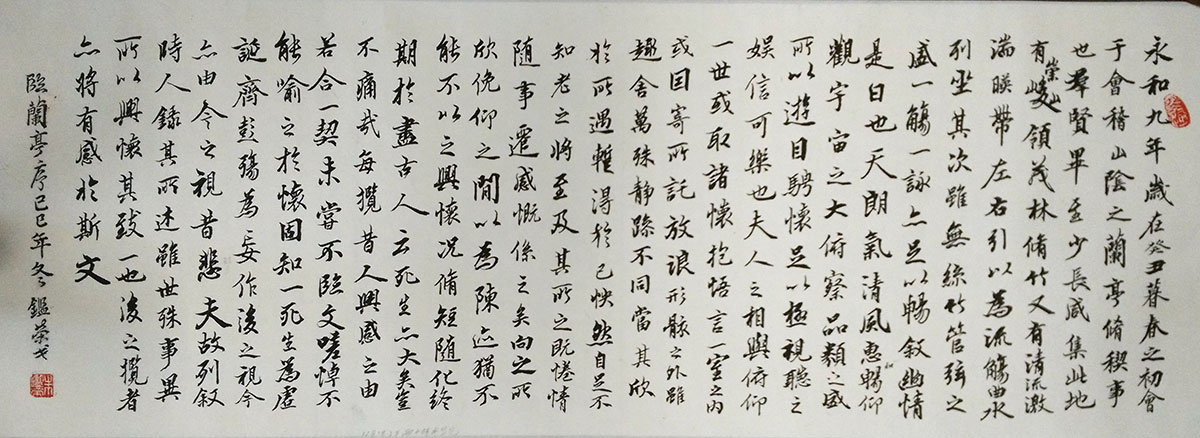 永和九年歲在癸丑暮春之初會
于會稽山陰之蘭亭脩稧事
也羣賢畢至少長咸集此地
有崇山峻領茂林脩竹又有清流激
湍暎帶左右引以為流觴曲水
列坐其次雖無絲竹管弦之
盛一觴一詠亦足以暢敘幽情
是日也天朗氣清風惠和暢仰
觀宇宙之大俯察品類之盛
所以遊目騁懷足以極視聽之
娛信可樂也夫人之相與俯仰
一世或取諸懷抱悟言一室之內
或因寄所託放浪形骸之外雖
趣舍萬殊静躁不同當其欣
於所遇蹔得於己怏然自足不
知老之將至及其所之既惓情
隨事遷感慨係之矣向之所
欣俛仰之閒以為陳迹猶不
能不以之興懷況脩短隨化終
期於盡古人云死生亦大矣豈
不痛哉每攬昔人興感之由
若合一契未嘗不臨文嗟悼不
能喻之於懷固知一死生為虛
誕齊彭殤為妄作後之視今
亦由今之視昔悲夫故列敘
時人錄其所述雖世殊事異
所以興懷其致一也後之攬者
亦將有感於斯文
臨蘭亭序己巳年冬鑑榮書